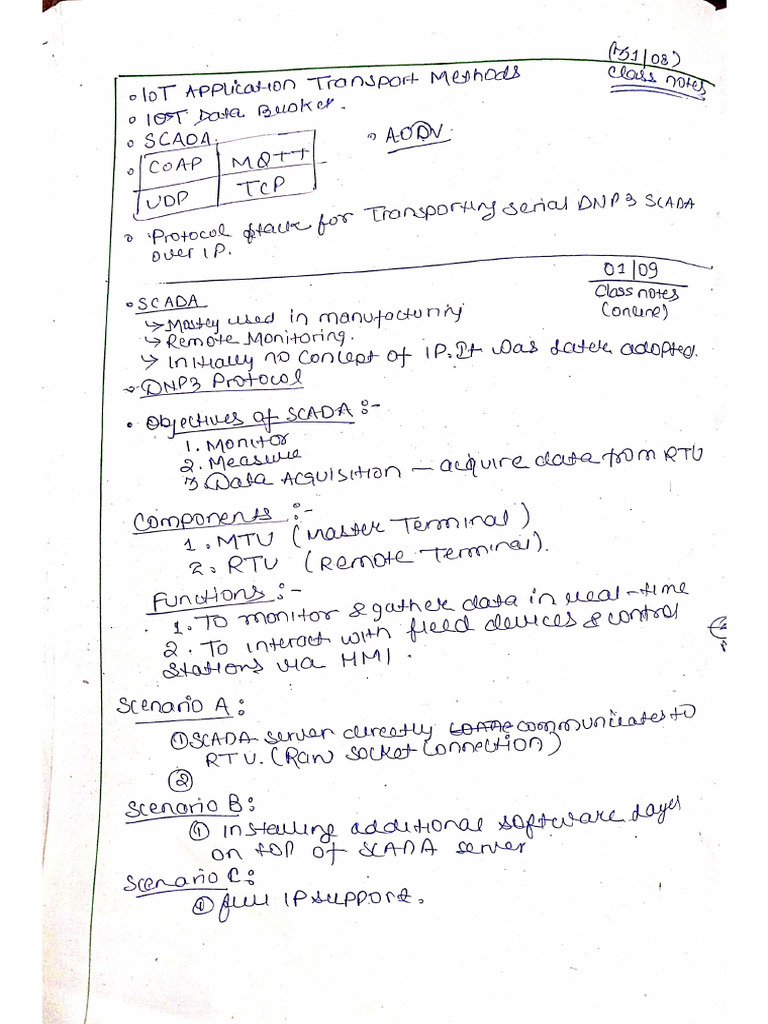 (31/08)
Class notes
• IOT Application Transport Methods
• IOT Data Broker.
• SCADA
• AODV.
• COAP | MQTT
UDP | TCP
• Protocol stack for Transporting serial DNP3 SCADA
over IP.
01/09
Class notes
(online)
• SCADA
↳ Mostly used in manufacturing
↳ Remote Monitoring.
↳ Initially no concept of IP. It was later adopted.
• DNP3 Protocol
• Objectives of SCADA :-
1. Monitor
2. Measure
3. Data Acquisition — acquire data from RTU
Components :-
1. MTU (Master Terminal)
2. RTU (Remote Terminal).
Functions :-
1. To monitor & gather data in real-time
2. To interact with field devices & control
stations via HMI.
Scenario A:
① SCADA server directly communicates to
RTU. (Raw socket connection)
②
Scenario B:
① Installing additional software layer
on top of SCADA server
Scenario C:
① full IP support.